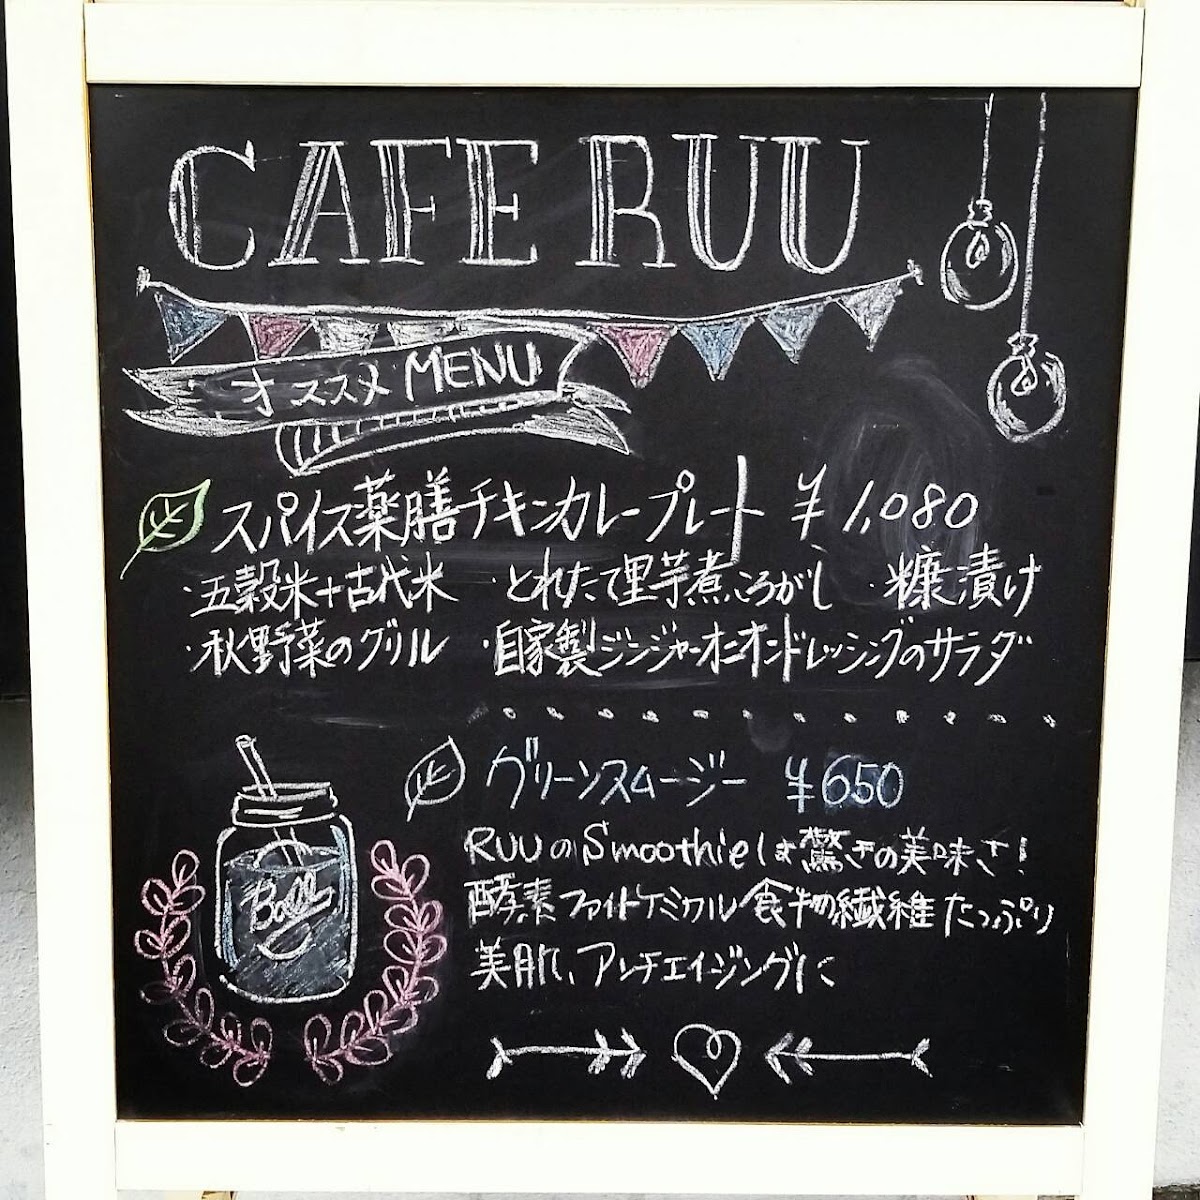 CAFE RUU
オススメ MENU
スパイス薬膳チキンカレープレート ¥1,080
・五穀米+古代米 ・とれたて里芋煮ころがし ・糠漬け
・秋野菜のグリル ・自家製ジンジャーオニオンドレッシングのサラダ
グリーンスムージー ¥650
RUUのSmoothieは驚きの美味さ!
酵素 ファイトケミカル 食物繊維たっぷり
美肌、アンチエイジングに
Ball